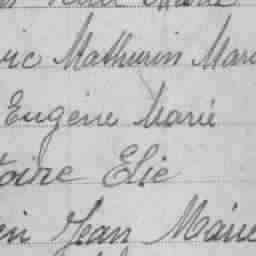 Mathurin Mari
Eugène Marie
toire Elie
Jean Marie